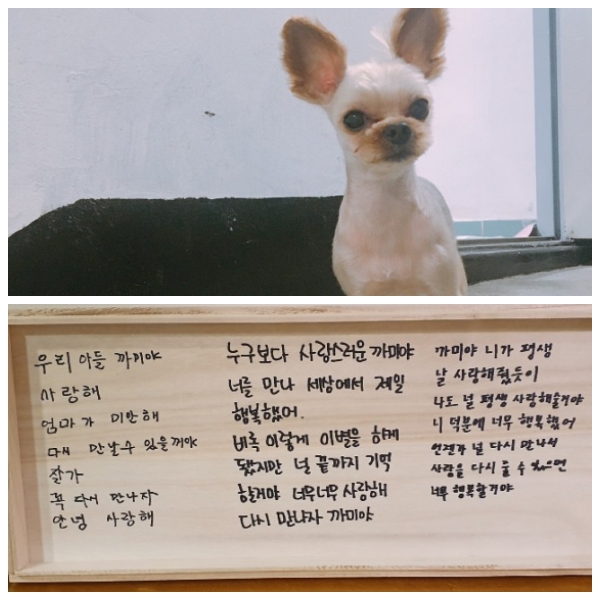 우리 아들 까미야
사랑해
엄마가 미안해
다시 만날수 있을꺼야
잘가
꼭 다시 만나자
안녕 사랑해
누구보다 사랑스러운 까미야
너를 만나 세상에서 제일
행복했어.
비록 이렇게 이별을 하게
됐지만 널 끝까지 기억
할거야 너무너무 사랑해
다시 만나자 까미야
까미야 니가 평생
날 사랑해줬듯이
나도 널 평생 사랑해줄거야
니 덕분에 너무 행복했어
언젠가 널 다시 만나서
사랑을 다시 줄 수 있으면
너무 행복할거야